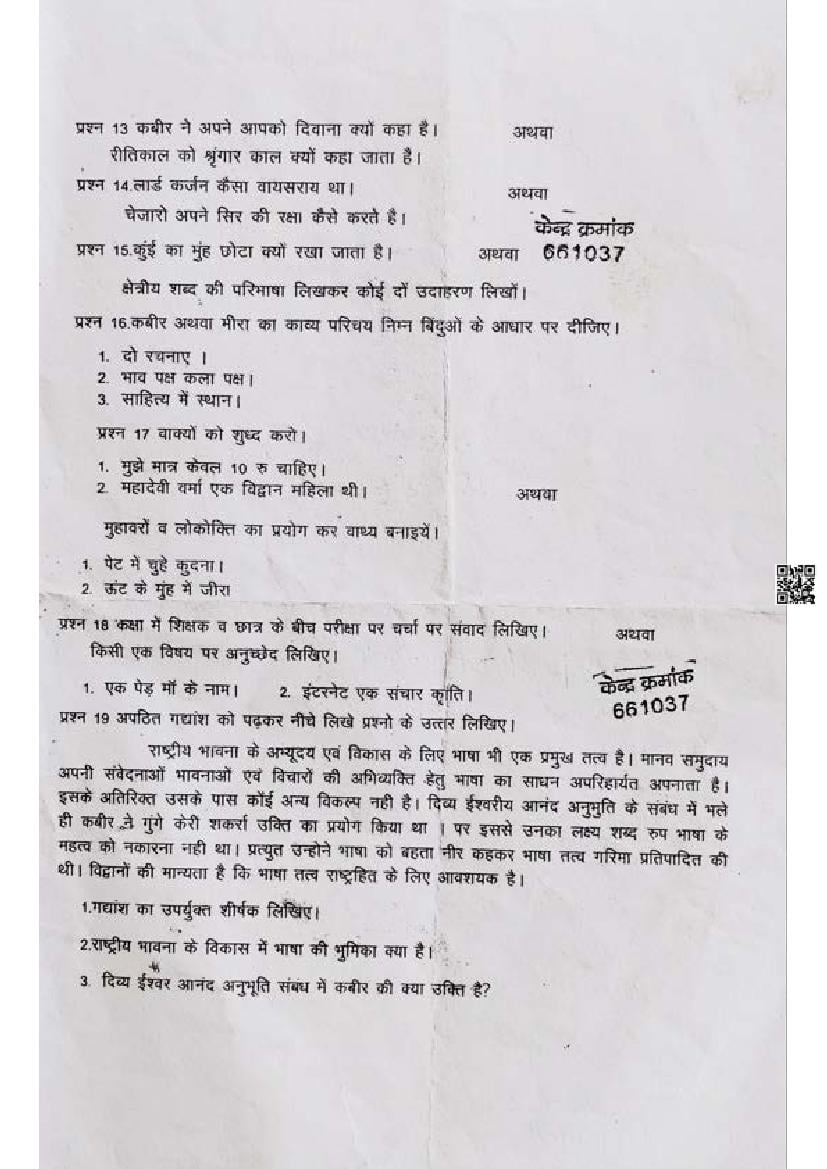 प्रश्न 13 कबीर ने अपने आपको दिवाना क्यों कहा है। अथवा
रीतिकाल को श्रृंगार काल क्यों कहा जाता है।
प्रश्न 14.लार्ड कर्जन कैसा वायसराय था। अथवा
चेजारो अपने सिर की रक्षा कैसे करते है।
केन्द्र क्रमांक
661037
प्रश्न 15.कुंई का मुंह छोटा क्यों रखा जाता है। अथवा
क्षेत्रीय शब्द की परिभाषा लिखकर कोई दों उदाहरण लिखों।
प्रश्न 16.कबीर अथवा मीरा का काव्य परिचय निम्न बिंदुओं के आधार पर दीजिए।
1. दो रचनाए ।
2. भाव पक्ष कला पक्ष।
3. साहित्य में स्थान।
प्रश्न 17 वाक्यों को शुध्द करो।
1. मुझे मात्र केवल 10 रु चाहिए।
2. महादेवी वर्मा एक विद्वान महिला थी। अथवा
मुहावरों व लोकोक्ति का प्रयोग कर वाध्य बनाइयें।
1. पेट में चुहे कुदना।
2. ऊंट के मुंह में जीरा
प्रश्न 18 कक्षा में शिक्षक व छात्र के बीच परीक्षा पर चर्चा पर संवाद लिखिए। अथवा
किसी एक विषय पर अनुच्छेद लिखिए।
1. एक पेड़ माँ के नाम। 2. इंटरनेट एक संचार कृांति।
केन्द्र क्रमांक
661037
प्रश्न 19 अपठित गद्यांश को पढ़कर नीचे लिखे प्रश्नो के उत्तर लिखिए।
राष्ट्रीय भावना के अभ्यूदय एवं विकास के लिए भाषा भी एक प्रमुख तत्व है। मानव समुदाय
अपनी संवेदनाओं भावनाओं एवं विचारों की अभिव्यक्ति हेतु भाषा का साधन अपरिहार्यत अपनाता है।
इसके अतिरिक्त उसके पास कोई अन्य विकल्प नही है। दिव्य ईश्वरीय आनंद अनुमुति के संबंध में भले
ही कबीर ने गुंगे केरी शकर्रा उक्ति का प्रयोग किया था । पर इससे उनका लक्ष्य शब्द रुप भाषा के
महत्व को नकारना नही था। प्रत्युत उन्होने भाषा को बहता नीर कइकर भाषा तत्व गरिमा प्रतिपादित की
थी। विद्वानों की मान्यता है कि भाषा तत्व राष्ट्रहित के लिए आवशयक है।
1.गद्यांश का उपर्युक्त शीर्षक लिखिए।
2.राष्ट्रीय भावना के विकास में भाषा की भुमिका क्या है।
3. दिव्य ईश्वर आनंद अनुभूति संबंध में कबीर की क्या उक्ति है?